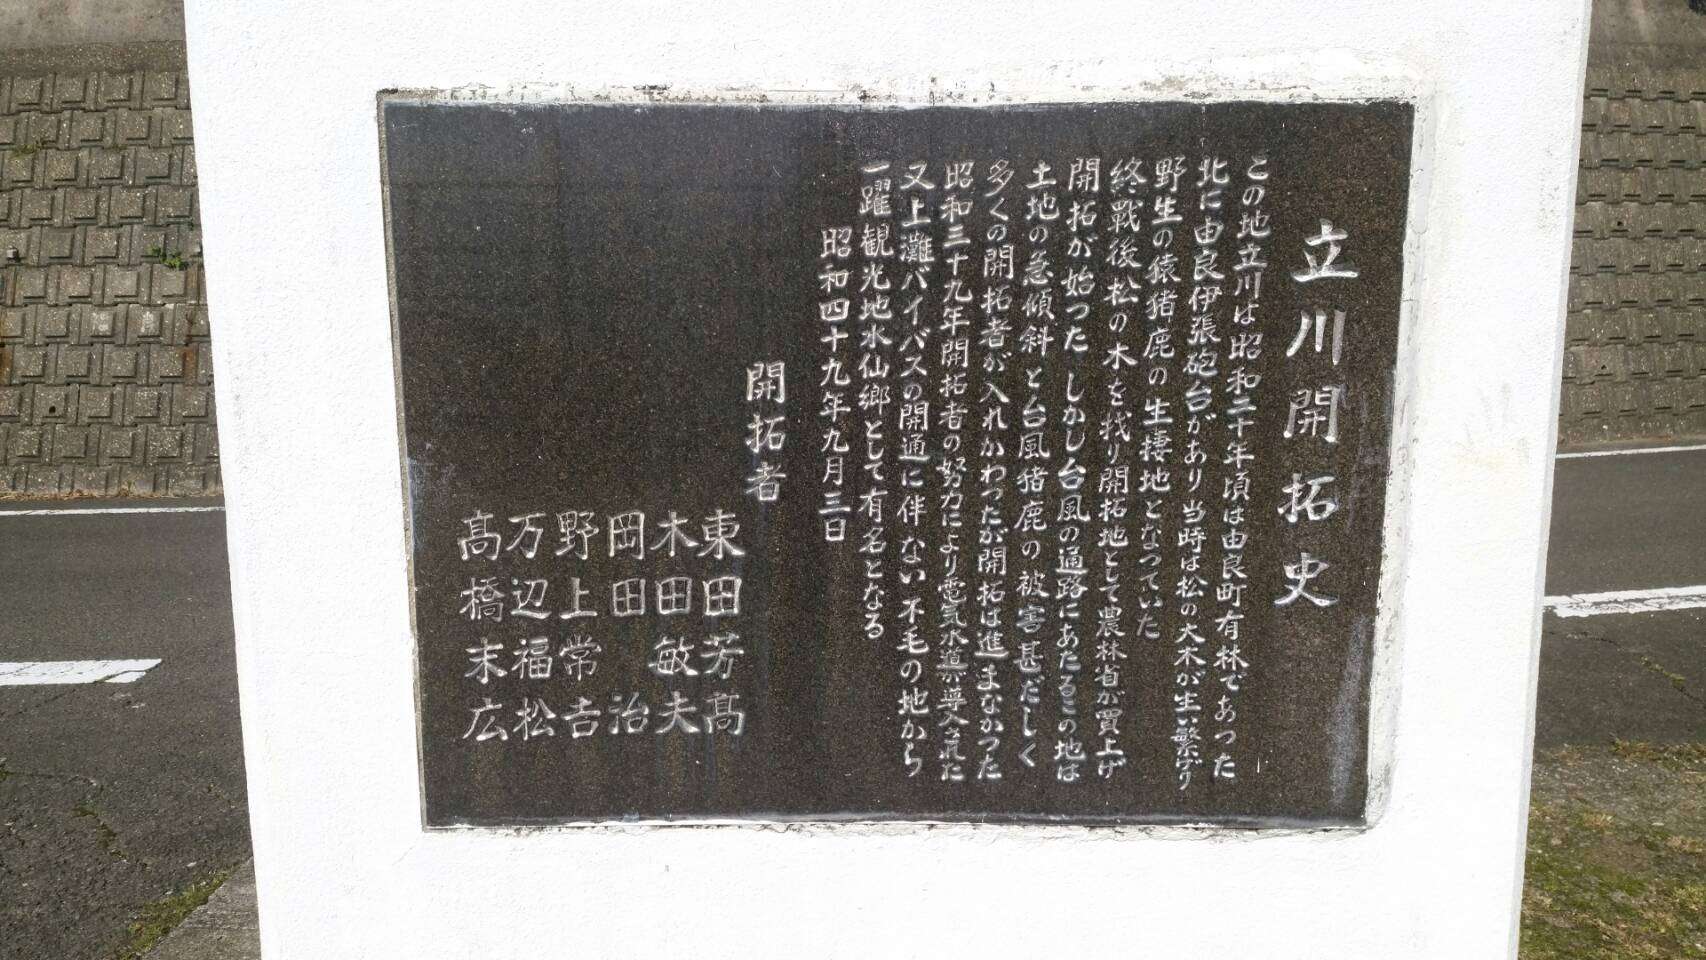 立川開拓史
この地立川は昭和二十年頃は由良町有林であった
北に由良伊張砲台があり当時は松の大木が生い繁げり
野生の猿猪鹿の生棲地となつていた
終戦後松の木を找り開拓地として農林省が買上げ
開拓が始つたしかし台風の通路にあたるこの地は
土地の急傾斜と台風猪鹿の被害甚だしく
多くの開拓者が入れかわつたが開拓は進まなかつた
昭和三十九年開拓者の努力により電気水道が導入された
又上灘バイパスの開通に伴ない不毛の地から
一躍観光地水仙郷として有名となる
昭和四十九年九月三日
開拓者
東田芳髙
木田敏夫
岡田治
野上常吉
万辺福松
髙橋末広